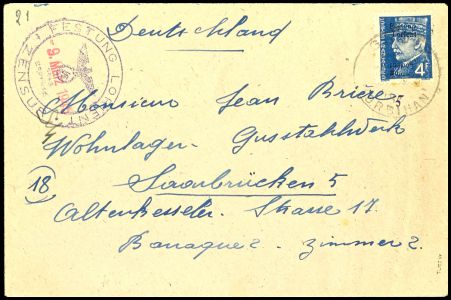 21
Deutschland
FESTUNG LORIENT
ZENSUR
9. MRZ. 19
4F
MORBIHAN
Monsieur Jean Brière
Wohnlager - Gusstahlwerk
18
Saarbrücken 5
Altenkesseler. Strasse 17.
Baraque 2. Zimmer 2.